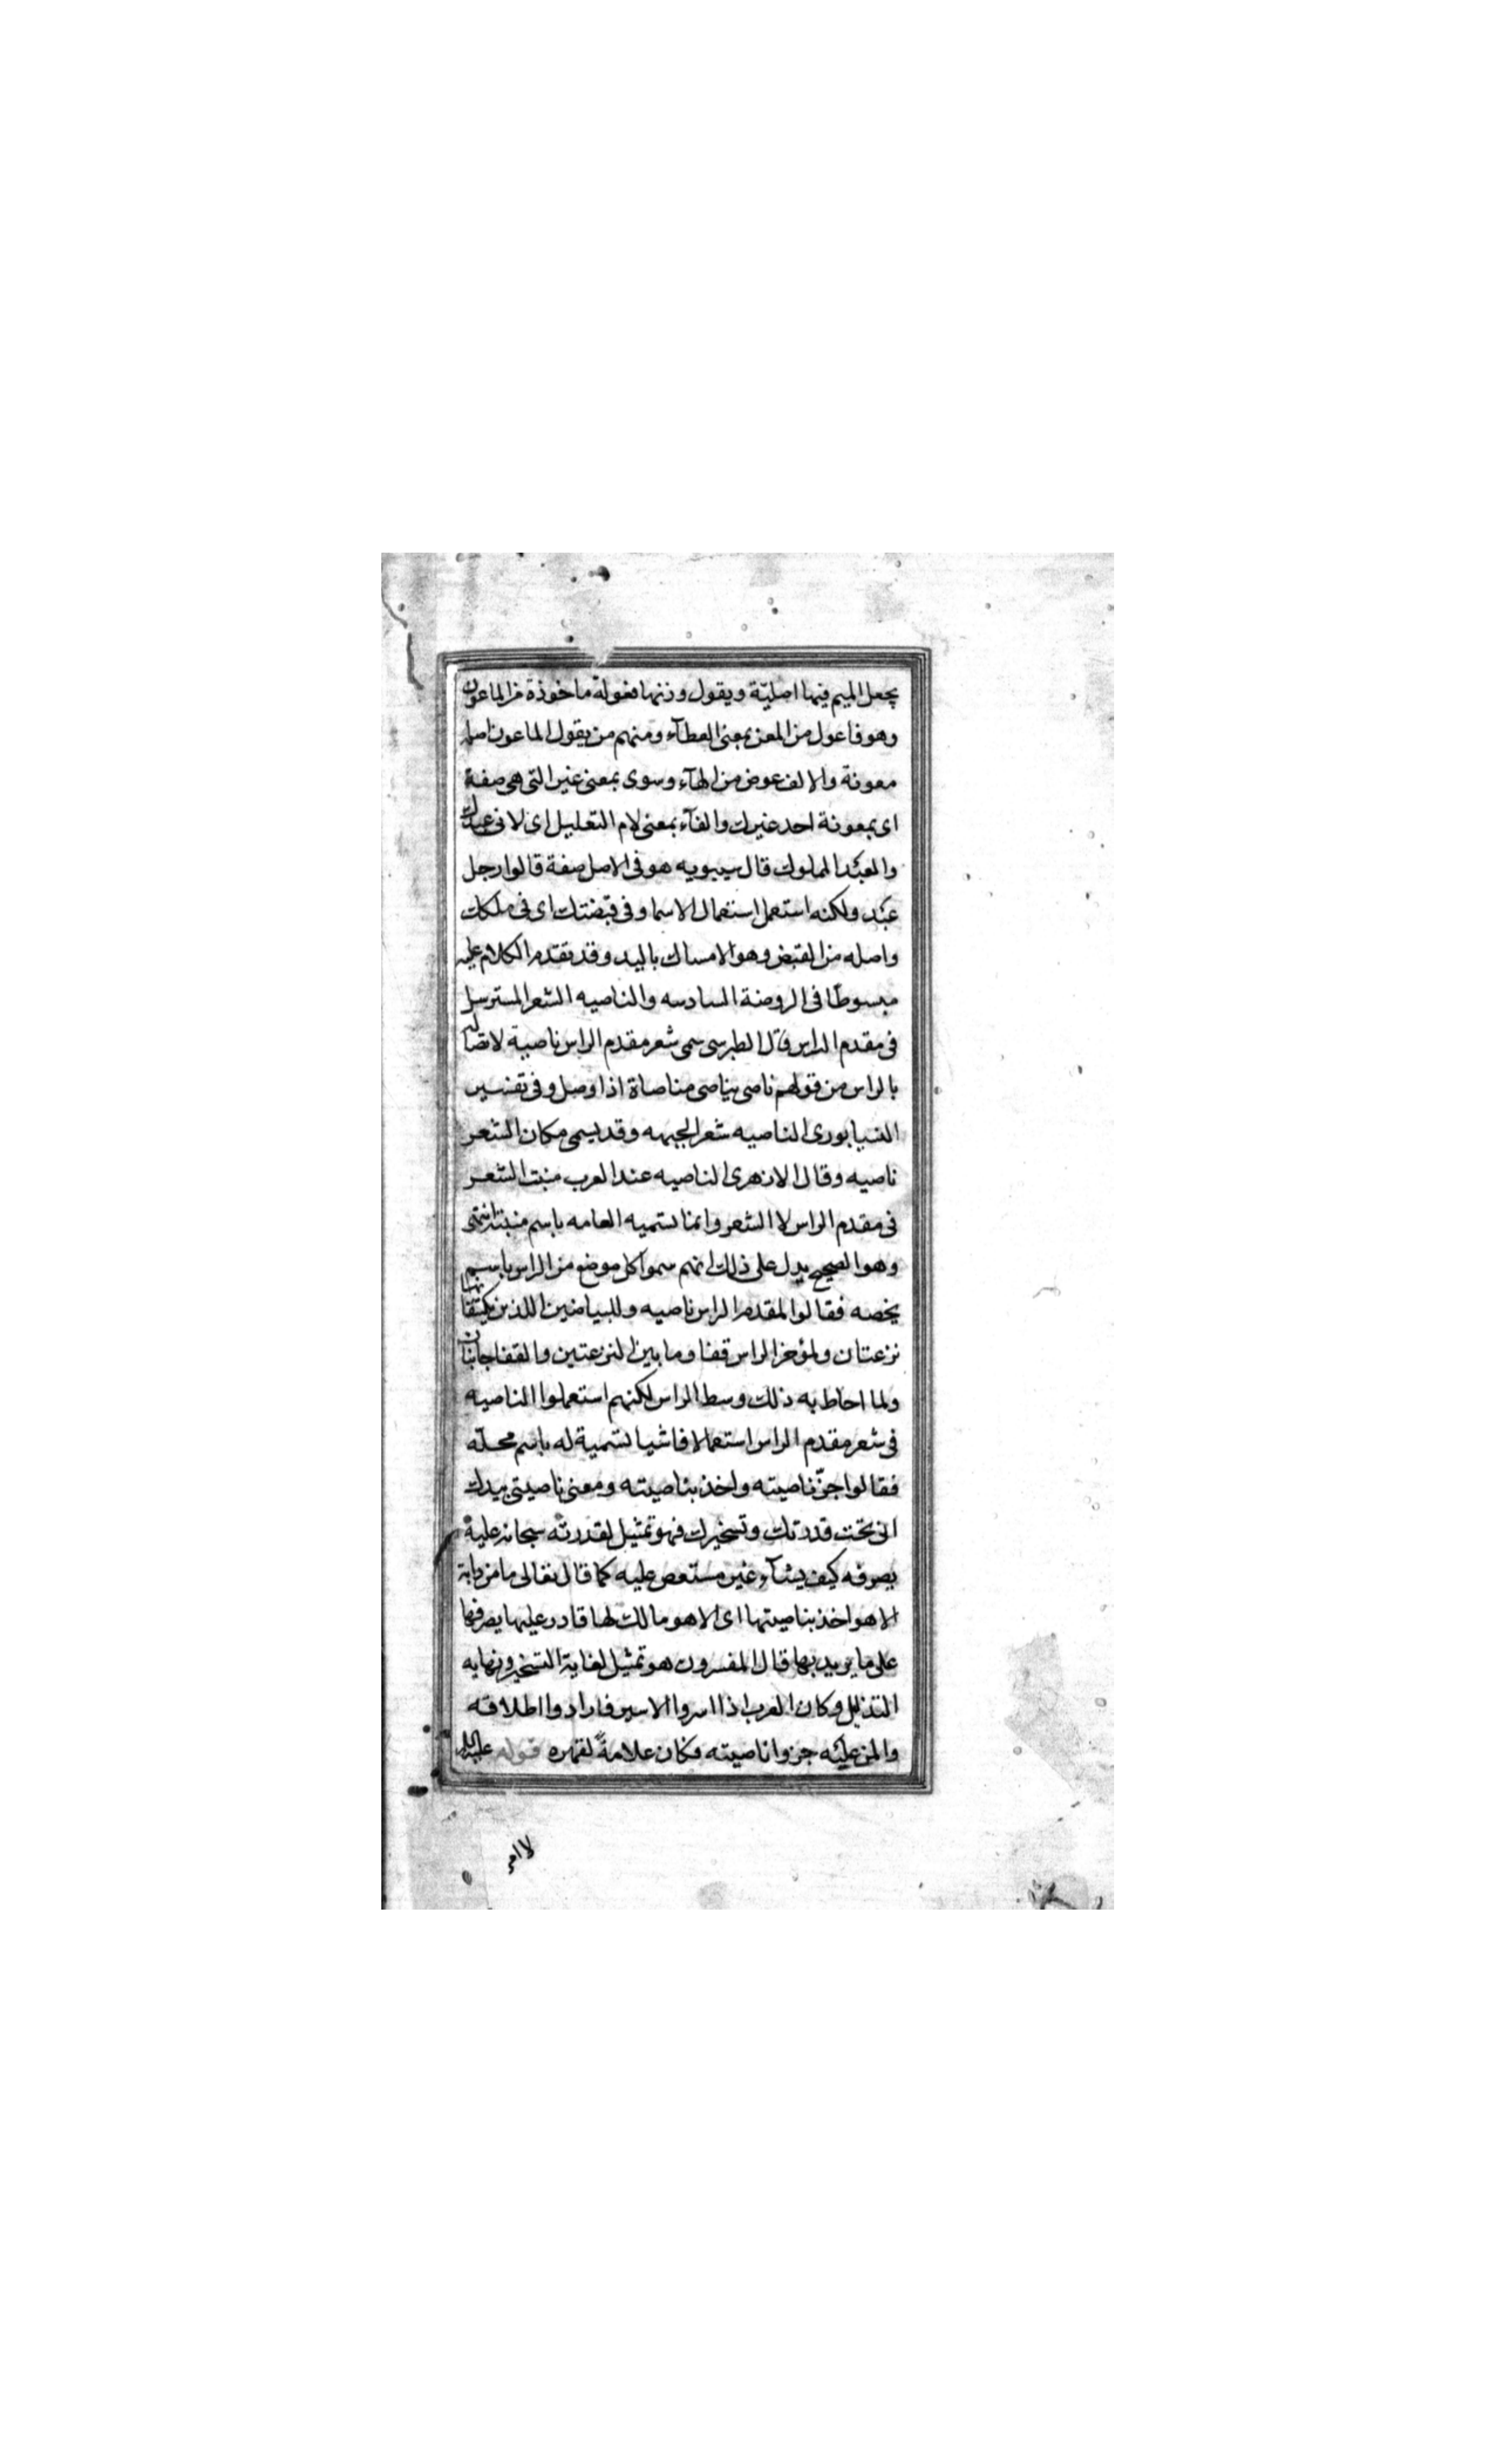 يجعل الميم فيها اصليّة ويقول وزنها فعولة ماخوذة من الماعون
وهو فاعول من المعن بمعنى العطآء ومنهم من يقول الماعون اصله
معونة والالف عوض من الهآء وسوى بمعنى غير التى هى صفة
اى بمعونة احد غيرك والفآء بمعنى لام التعليل اى لانى عبدك
والعبد المملوك قال سيبويه هو فى الاصل صفة قالوا رجل
عبد ولكنه استعمل استعمال الاسما وفى قبضتك اى فى ملكك
واصله من القبض وهو الامساك باليد وقد تقدم الكلام عليه
مبسوطا فى الروضة السادسه والناصيه الشعر المسترسل
فى مقدم الراس قال الطبرسى سمى شعر مقدم الراس ناصية لاتصاله
بالراس من قولهم ناصى يناصى مناصاة اذا وصل وفى تفسير
النيسابورى الناصيه شعر الجبهه وقد يسمى مكان الشعر
ناصيه وقال الازهرى الناصيه عند العرب منبت الشعر
فى مقدم الراس لا الشعر وانما تسميه العامه باسم منبته انتهى
وهو الصحيح يدل على ذلك انهم سموا كل موضع من الراس باسم
يخصه فقالوا لمقدم الراس ناصيه وللبياضين اللذين يكتنفانها
نزعتان ولمؤخر الراس قفا وما بين النزعتين والقفا جانبان
ولما احاط به ذلك وسط الراس لكنهم استعملوا الناصيه
فى شعر مقدم الراس استعمالا فاشيا تسمية له باسم محلّه
فقالوا جزّ ناصيته واخذ بناصيته ومعنى ناصيتى بيدك
انى تحت قدرتك وتسخيرك فهو تمثيل لقدرته سبحانه عليه
يصرفه كيف يشآء غير مستعص عليه كما قال تعالى ما من دابة
الا هو اخذ بناصيتها اى الا هو مالك لها قادر عليها يصرفها
على ما يريد بها قال المفسرون هو تمثيل لغاية التسخير ونهايه
التذلل وكان العرب اذا اسروا الاسير فارادوا اطلاقه
والمن عليه جزوا ناصيته فكان علامةً لقهره قوله عليه السلام
لا امر